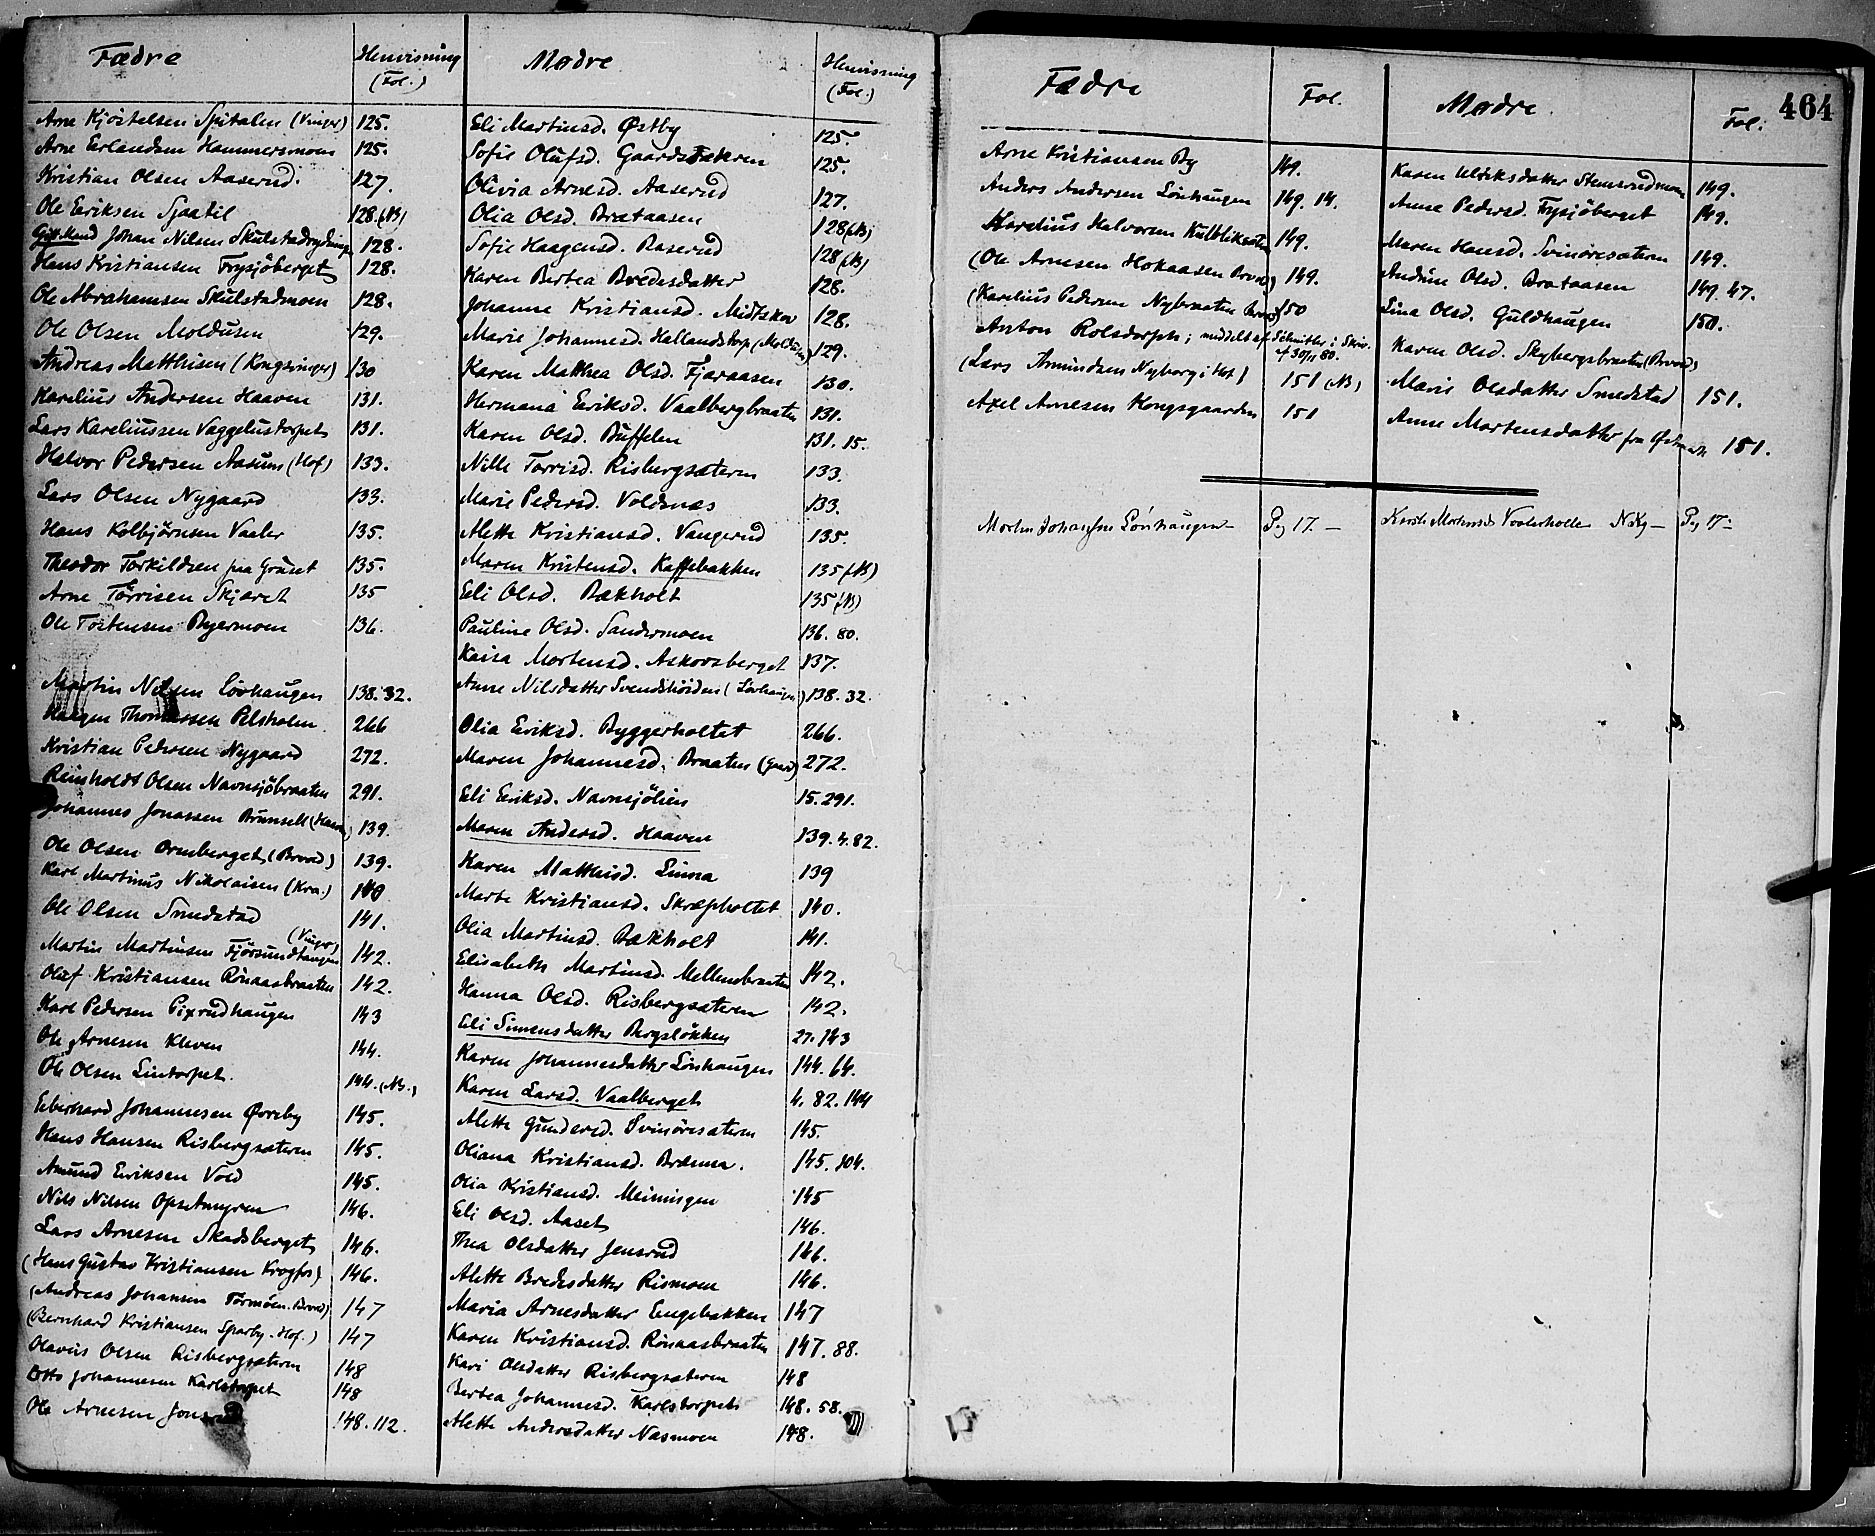 Fædre Henvisning (Fol.) Mødre Henvisning (Fol.)
Arne Kjostelsen Spitalen (Vinger) 125. Eli Martinsd. Østby 125.
Arne Erlandsen Hammersmoen 125. Sofie Olufsd. Gaardsbakken 125.
Kristian Olsen Aaserud. 127. Olivia Arnesd. Aaserud 127.
Ole Eriksen Sjaatil 128.(NB) Olia Olsd. Brataasen 128(NB)
Gift.Mand Johan Nilsen Skulstadrydning 128. Sofie Haagensd. Baserud 128(NB)
Hans Kristiansen Frysjöberget 128. Karen Bertea Bredesdatter 128.
Ole Abrahamsen Skulstadmoen 128. Johanne Kristiansd. Midtskov 128.
Ole Olsen Moldusen 129. Marie Johannesd. Hallandstorp 129.
Andreas Matthisen (Kongsvinger) 130 Karen Mathea Olsd. Fjæraasen 130.
Karelius Andersen Haaven 131. Hermana Eriksd. Vaalbergbraaten 131.
Lars Kareliussen Vaggelustorpet 131. Karen Olsd. Buffelen 131. 15.
Halvor Pedersen Aasum (Hof) 133. Nille Torrisd. Risbergsæteren 133.
Lars Olsen Nygaard 133. Marie Pedersd. Voldsnæs 133.
Hans Kolbjørnsen Vaaler 135. Alette Kristiansd. Vangerud 135.
Theodor Torkildsen fra Gruset 135. Maren Kristensd. Kaffebakken 135(NB)
Arne Törrisen Skjæret 135 Eli Olsd. Bækholt 135(NB)
Ole Tostensen Byermoen 136. Pauline Olsd. Sandermoen 136. 80.
Kaisa Mortensd. Askovsberget 137.
Martin Nilsen Lövhaugen 138. 32. Anne Nilsdatter Svendshöiden (Lövhaugen) 138. 32.
Haagen Thomassen Pelsholen 266 Olia Eriksd. Byggerholtet 266.
Kristian Pedersen Nygaard 272. Maren Johannesd. Braaten 272.
Reinholdt Olsen Navnsjöbraaten 291. Eli Eriksd. Navnsjölien 15. 291.
Johannes Jonassen Brunsell 139. Maren Andersd. Haaven 139. 4. 82.
Ole Olsen Ormberget (Brvod) 139. Karen Mathisd. Linna 139
Karl Martinus Nikolaisen (Kra.) 140 Marte Kristiansd. Skræpholtet 140.
Ole Olsen Smedstad 141. Olia Martinsd. Bækholt 141.
Martin Martinsen Fjörsundtangen (Vinger) 142. Elisabeth Martinsd. Mellembraaten 142.
Oluf Kristiansen Rönaasbraaten 142. Hanna Olsd. Risbergsæteren 142.
Karl Pedersen Pixrudhaugen 143 Eli Simensdatter Bergslökken 27. 143
Ole Arnesen Kleven 144. Karen Johannesdatter Lövhaugen 144. 64.
Ole Olsen Lintorpet. 144.(NB.) Karen Larsd. Vaalberget 4. 82. 144
Eberhard Johannesen Øvreby 145. Alette Gundersd. Svinöresæteren 145.
Hans Hansen Risbergsæteren 145. Oliana Kristiansd. Brænna. 145. 104.
Amund Eriksen Vold 145. Olia Kristiansd. Meiningen 145
Nils Nilsen Opsetmyren 146. Eli Olsd. Aaset 146.
Lars Arnesen Skadsberget 146. Thea Olsdatter Jensrud 146.
(Hans Gustav Kristiansen Krogfos) 146. Alette Bredesdatter Rismoen 146.
(Andreas Johansen Tørmöen. Brvod) 147 Maria Arnesdatter Engebakken 147
(Bernhard Kristiansen Sparby. Hof.) 147 Karen Kristiansd. Rönaasbraaten 147. 88.
Olavus Olsen Risbergsæteren 148 Kari Olsdatter Risbergsæteren 148
Otto Johannesen Karlstorpet 148 Bertea Johannesd. Karlstorpet 148. 58.
Ole Arnesen Jonsrud 148. 112. Alette Andersdatter Næsmoen 148.
464
Fædre Fol. Mødre Fol.
Arne Kristiansen By 149. Karen Ulriksdatter Stemsrudmoen 149.
Anders Andersen Lövhaugen 149. 14. Anne Pedersd. Frysjöberget 149.
Karelius Halvorsen Kulblikæten 149. Maren Hansd. Svinöresæteren 149.
(Ole Arnesen Hokaasen Brvod) 149. Andrine Olsd. Brataasen 149. 47.
(Karelius Pedersen Nybraaten Brvod) 150 Lina Olsd. Guldhaugen 150.
Anton Rolsdorph; meddelt af Schnitler i Skriv. af 30/11 80. Karen Olsd. Skybergsbraaten (Brvod)
(Lars Amundsen Nyborg i Hof) 151 (NB) Maris Olsdatter Smedstad 151.
Axel Arnesen Kongsgaarden 151 Anne Mortensdatter fra Østmark 151.
Morten Johansen Lövhaugen – Pg 17. – Kirsti Mortensd. Vaalerholle N.Kg – Pg 17 –